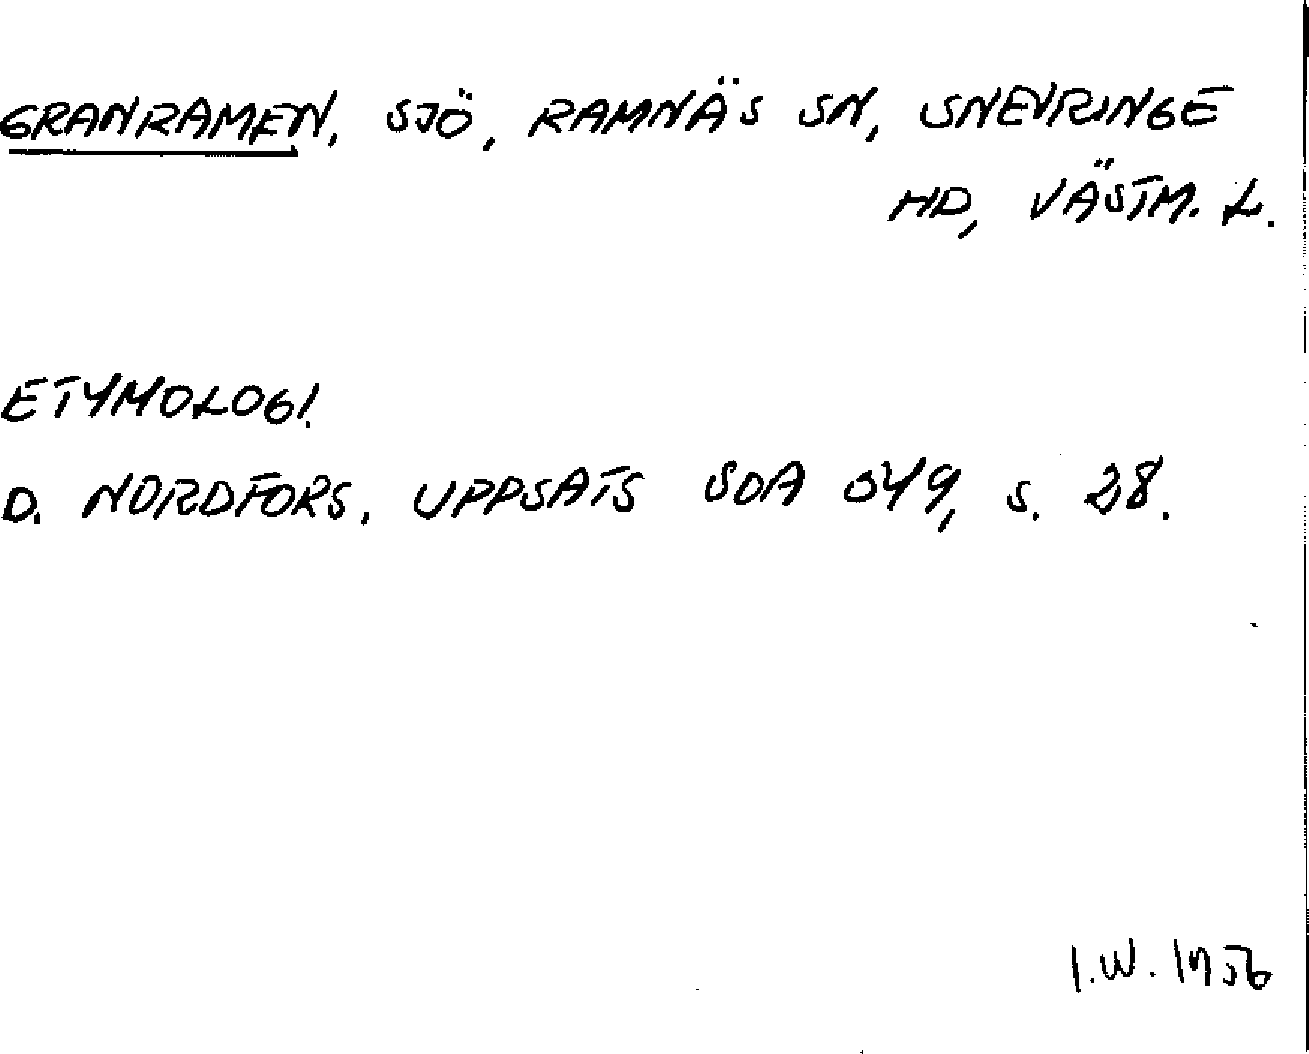 GRANRAMEN, SJÖ, RAMNÄS SN, SNEVRINGE
HD, VÄSTM. L.
ETYMOLOGI.
D. NORDFORS, UPPSATS SOA 049, S. 28.
I.W. 1956